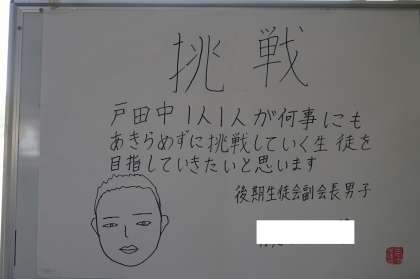 挑戦
戸田中1人1人が何事にも
あきらめずに挑戦していく生徒を
目指していきたいと思います
後期生徒会副会長男子